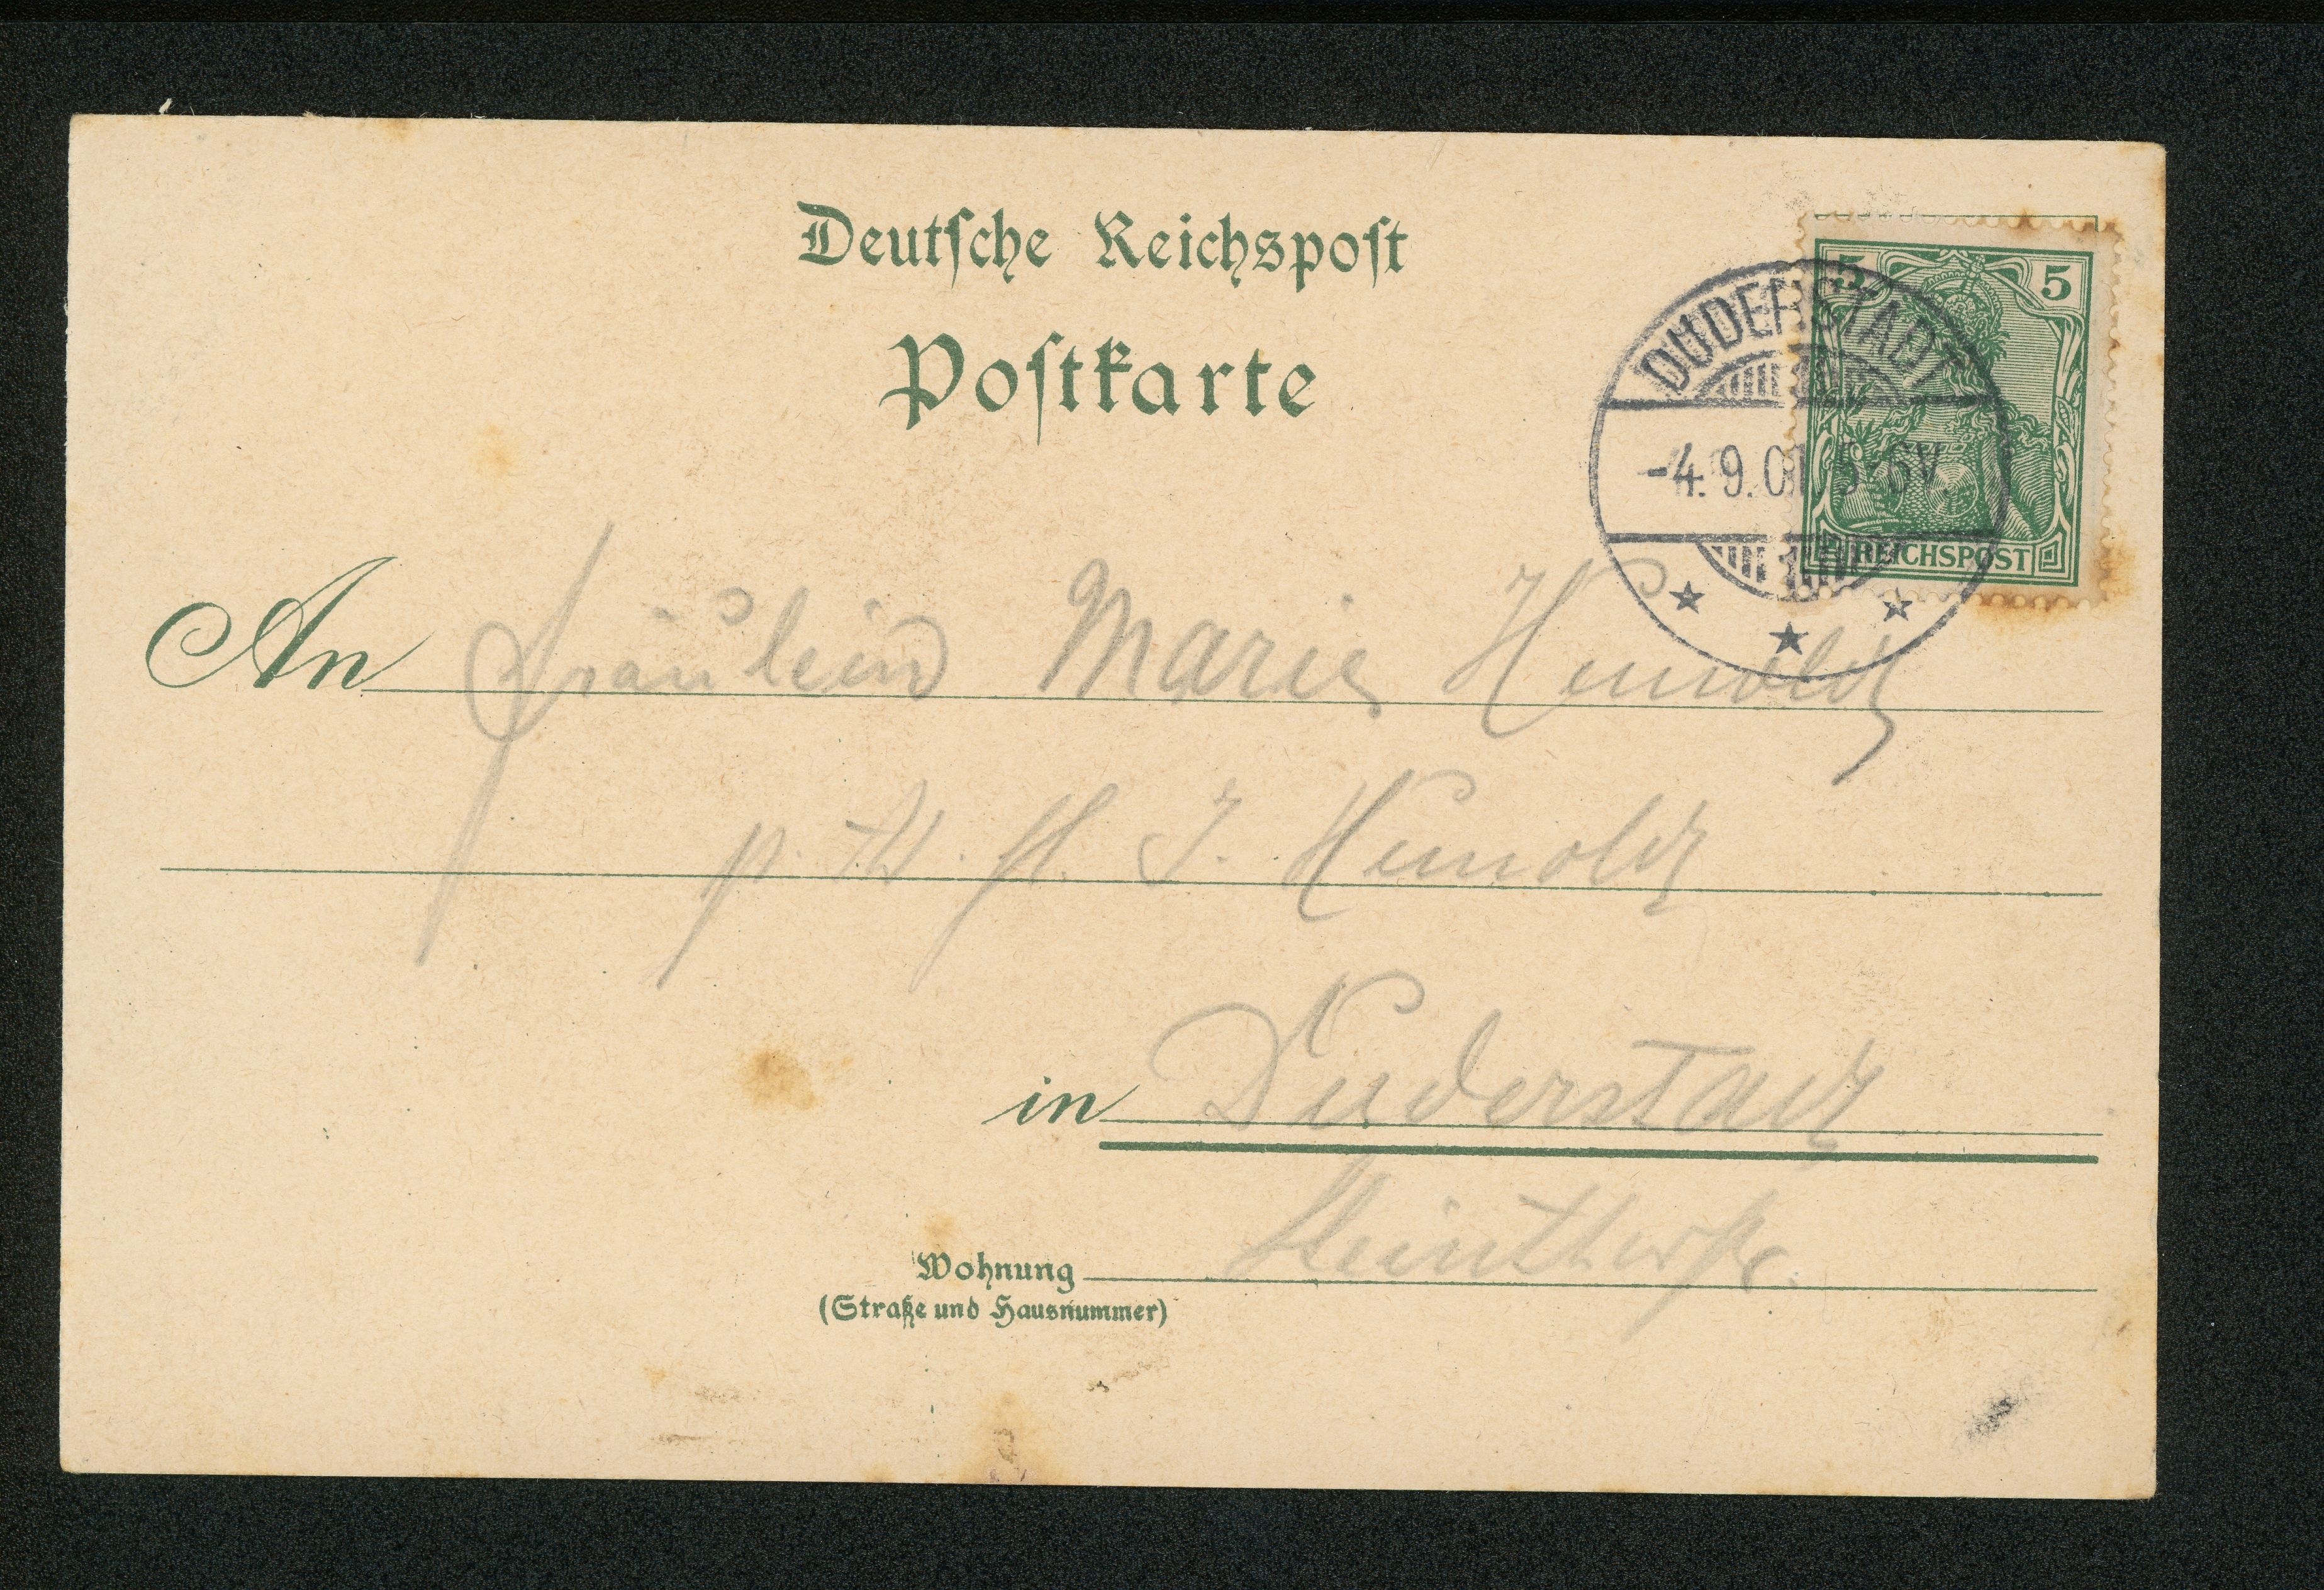 Deutsche Reichspost
Postkarte
5 5
DUDERSTADT
-4. 9. 01 5-6V
REICHSPOST
An Fräulein Marie Hunold
p. Ad. J. Hunold
in Duderstadt
Wohnung
(Straße und Hausnummer)